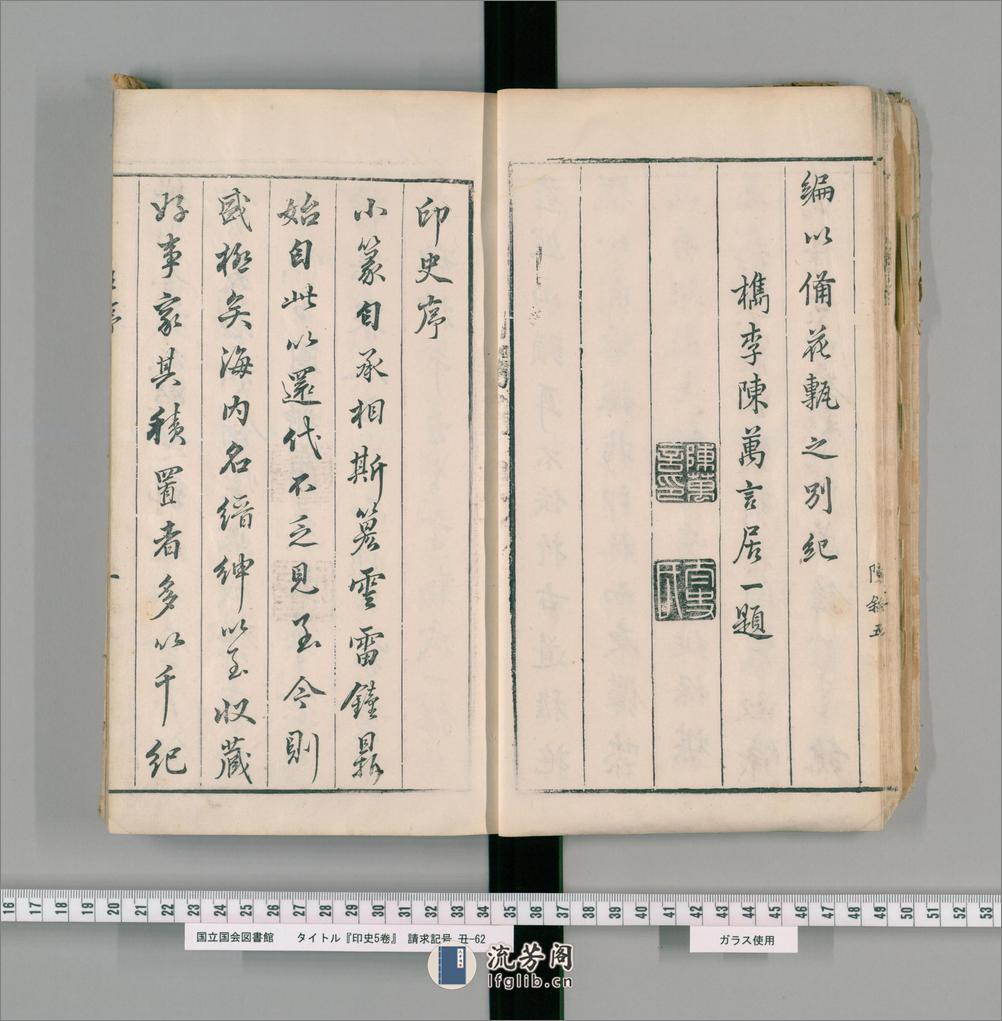 編以備花甎之別紀
檇李陳萬言居一題
陳萬
言印
陳錄五
印史序
小篆自承相斯、䇿雲雷鐘鼎
始自此以還代不乏見至今則
盛極矣海内名縉紳以至收藏
好事家其積置者多以千紀
16 17 18 19 20 21 22 23 24 25 26 27 28 29 30 31 32 33 34 35 36 37 38 39 40 41 42 43 44 45 46 47 48 49 50 51 52 53
国立国会図書館 タイトル『印史5巻』 請求記号 丑-62
ガラス使用
流芳阁
lfglib.cn